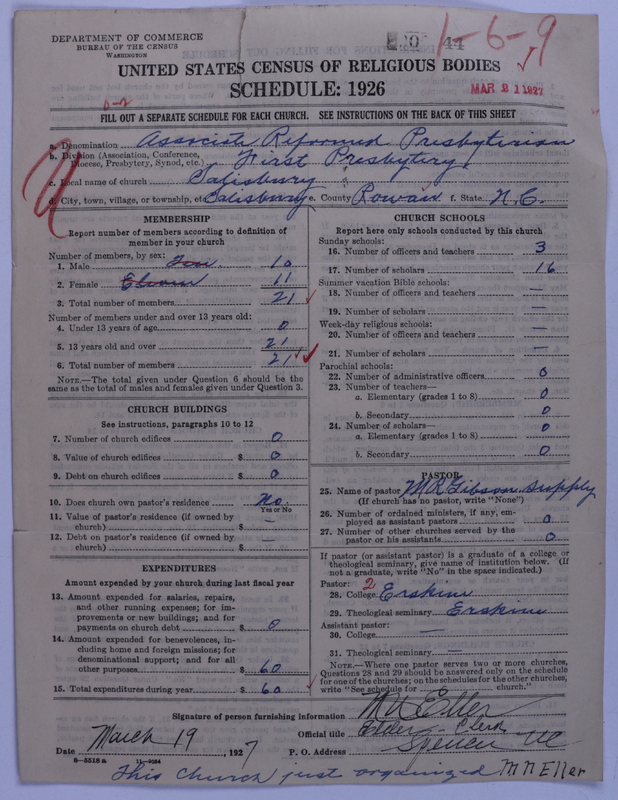 DEPARTMENT OF COMMERCE
BUREAU OF THE CENSUS
WASHINGTON
44
1-6-9
UNITED STATES CENSUS OF RELIGIOUS BODIES
SCHEDULE: 1926
MAR 21 1927
FILL OUT A SEPARATE SCHEDULE FOR EACH CHURCH. SEE INSTRUCTIONS ON THE BACK OF THIS SHEET
a. Denomination Associate Reformed Presbyterian
b. Division (Association, Conference, Diocese, Presbytery, Synod, etc.) First Presbytery
c. Local name of church Salisbury "
d. City, town, village, or township, etc. Salisbury e. County Rowan f. State N.C.
MEMBERSHIP
Report number of members according to definition of
member in your church
Number of members, by sex:
1. Male Ten 10
2. Female Eleven 11
3. Total number of members 21
Number of members under and over 13 years old:
4. Under 13 years of age 0
5. 13 years old and over 21
6. Total number of members 21
NOTE.—The total given under Question 6 should be the
same as the total of males and females given under Question 3.
CHURCH BUILDINGS
See instructions, paragraphs 10 to 12
7. Number of church edifices 0
8. Value of church edifices $ 0
9. Debt on church edifices $ 0
10. Does church own pastor's residence No
Yes or No
11. Value of pastor's residence (if owned by
church) $ —
12. Debt on pastor's residence (if owned by
church) $ —
EXPENDITURES
Amount expended by your church during last fiscal year
13. Amount expended for salaries, repairs,
and other running expenses; for im-
provements or new buildings; and for
payments on church debt $ 0
14. Amount expended for benevolences, in-
cluding home and foreign missions; for
denominational support; and for all
other purposes $ 60
15. Total expenditures during year $ 60
CHURCH SCHOOLS
Report here only schools conducted by this church
Sunday schools:
16. Number of officers and teachers 3
17. Number of scholars 16
Summer vacation Bible schools:
18. Number of officers and teachers —
19. Number of scholars —
Week-day religious schools:
20. Number of officers and teachers —
21. Number of scholars —
Parochial schools:
22. Number of administrative officers 0
23. Number of teachers—
a. Elementary (grades 1 to 8) 0
b. Secondary 0
24. Number of scholars—
a. Elementary (grades 1 to 8) 0
b. Secondary 0
PASTOR
25. Name of pastor M R Gibson supply
(If church has no pastor, write "None")
26. Number of ordained ministers, if any, em-
ployed as assistant pastors 0
27. Number of other churches served by the
pastor or his assistants 0
If pastor (or assistant pastor) is a graduate of a college or
theological seminary, give name of institution below. (If
not a graduate, write "No" in the space indicated.)
Pastor: 2
28. College Erskine
29. Theological seminary Erskine
Assistant pastor:
30. College —
31. Theological seminary —
NOTE.—Where one pastor serves two or more churches,
Questions 28 and 29 should be answered only on the schedule
for one of the churches; on the schedules for the other churches,
write "See schedule for church."
Signature of person furnishing information M N Eller
Official title Elder - Clerk
Date March 19, 1927 P. O. Address Spencer NC
8—5518 a 11—9054
This church just organized M N Eller